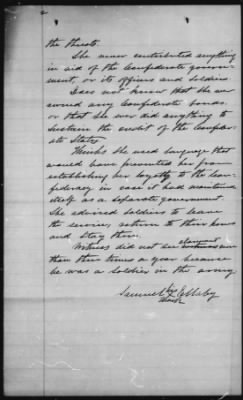 the threats.
She never contributed anything
in aid of the Confederate govern-
ment, or its officers and soldiers.
Does not know that she ever
owned any Confederate bonds.
or that she ever did anything to
sustain the credit of the Confeder-
ate States.
Thinks she used language that
would have prevented her from
establishing her loyalty to the Con-
federacy in case it had maintained
itself as a separate government
She advised soldiers to leave
the service, return to their homes
and stay there.
Witness did not see claimant
than three times a year because
he was a soldier in the army
Samuel his
mark